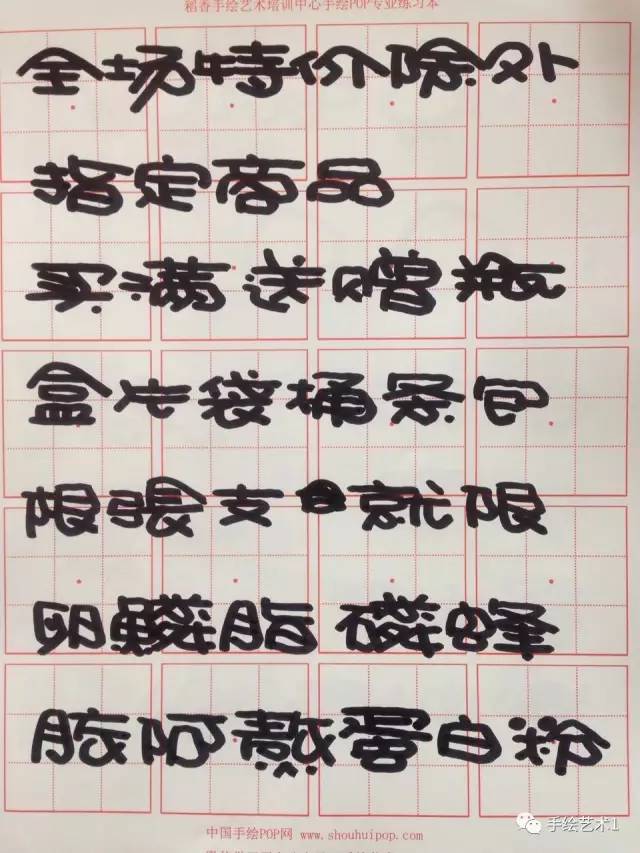 稻香手绘艺术培训中心手绘POP专业练习本
全场特价除外
指定商品
买满送见赠瓶
盒片袋桶条包
限張支就限
卵鳞脂磷蜂
胶阿熬蛋白粉
中国手绘POP网 www.shouhuipop.com
手绘艺术1